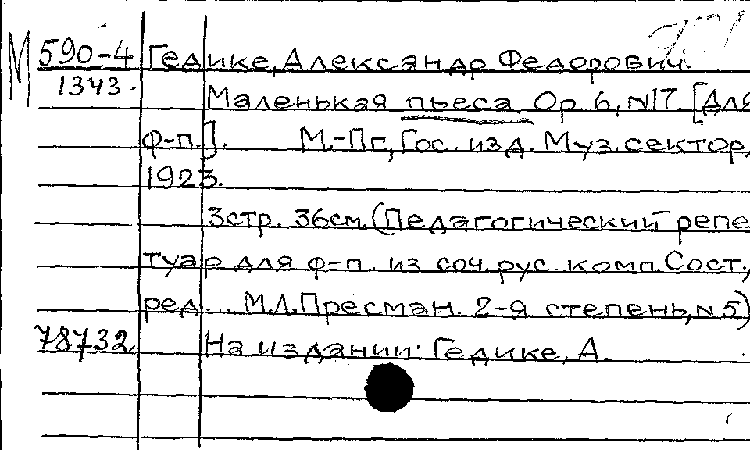 М 590-4 Гедике, Александр Федорович.
1343.
Маленькая пьеса. Ор. 6, N17. [Для
ф-п.]. М.-Пг, Гос. изд. Муз. сектор,
1923.
3стр. 36см. (Педагогический репе
туар для ф-п. из соч. рус. комп. Сост.,
ред. . М.Л. Пресман. 2-я степень, N5)
78732 На издании: Гедике, А.